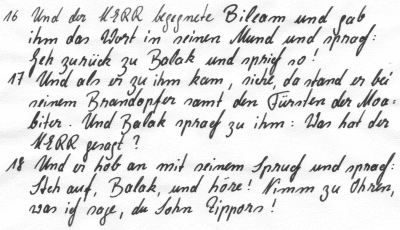 16 Und der HERR begegnete Bileam und gab
ihm das Wort in seinen Mund und sprach:
Geh zurück zu Balak und sprich so!
17 Und als er zu ihm kam, siehe, da stand er bei
seinem Brandopfer samt den Fürsten der Moa-
biter. Und Balak sprach zu ihm: Was hat der
HERR gesagt?
18 Und er hob an mit seinem Spruch und sprach:
Steh auf, Balak, und höre! Nimm zu Ohren,
was ich sage, du Sohn Zippors!